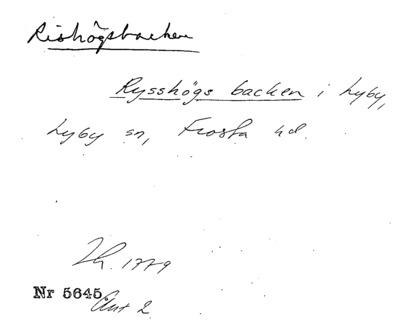 Rishögsbacken
Rysshögs backen i Lyby,
Lyby sn, Frosta hd.
Lh. 1779
Nr 5645
Ant 2